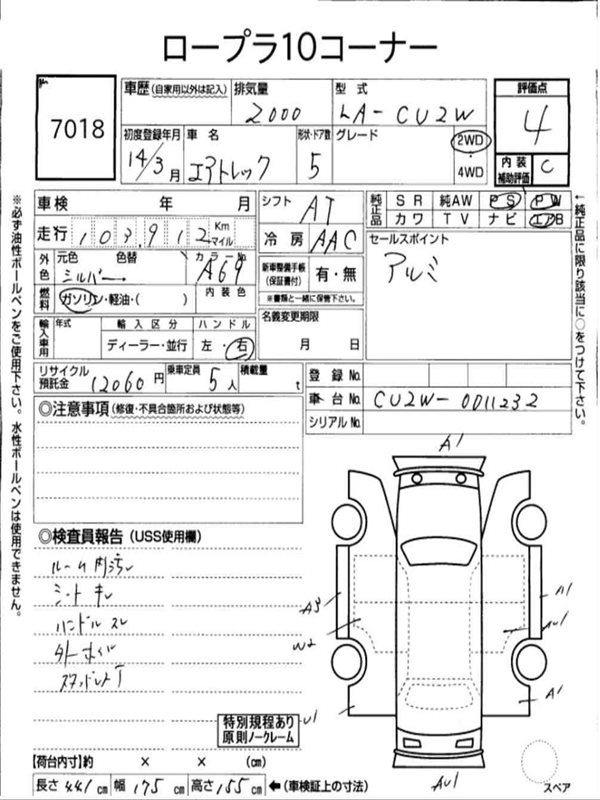 ロープラ10コーナー
7018
車歴(自家用以外は記入) 排気量 型式 評価点
2000 LA-CU2W 4
初度登録年月 車名 形状・ドア数 グレード 2WD 内装 C
14/3月 エアトレック 5 4WD 補助評価
車検 年 月 シフト AT 純正品 SR 純AW PS PW
走行 103,912 Km マイル 冷房 AAC カワ TV ナビ エアB
外色 元色 色替 カラーNo. 新車整備手帳(保証書付) 有・無 セールスポイント
シルバー A69 ※書類と一緒に保管下さい。 アルミ
燃料 ガソリン・軽油・( ) 内装色 名義変更期限
輸入車用 年式 輸入区分 ハンドル 月 日
ディーラー・並行 左・右
リサイクル預託金 12060円 乗車定員 5人 積載量 t 登録No.
車台No. CU2W-0011232
シリアルNo.
◎注意事項(修復・不具合箇所および状態等)
◎検査員報告(USS使用欄)
ルーム内汚レ
シートキレ
ハンドルスレ
A1
A3
A1
W2
AU1
U1
A1
AU1
特別規程あり
原則ノークレーム
スペア
【荷台内寸】約 × × (cm)
長さ441cm 幅175cm 高さ155cm ←(車検証上の寸法)
※必ず油性ボールペンをご使用下さい。水性ボールペンは使用できません。
←純正品に限り該当に○をつけて下さい。